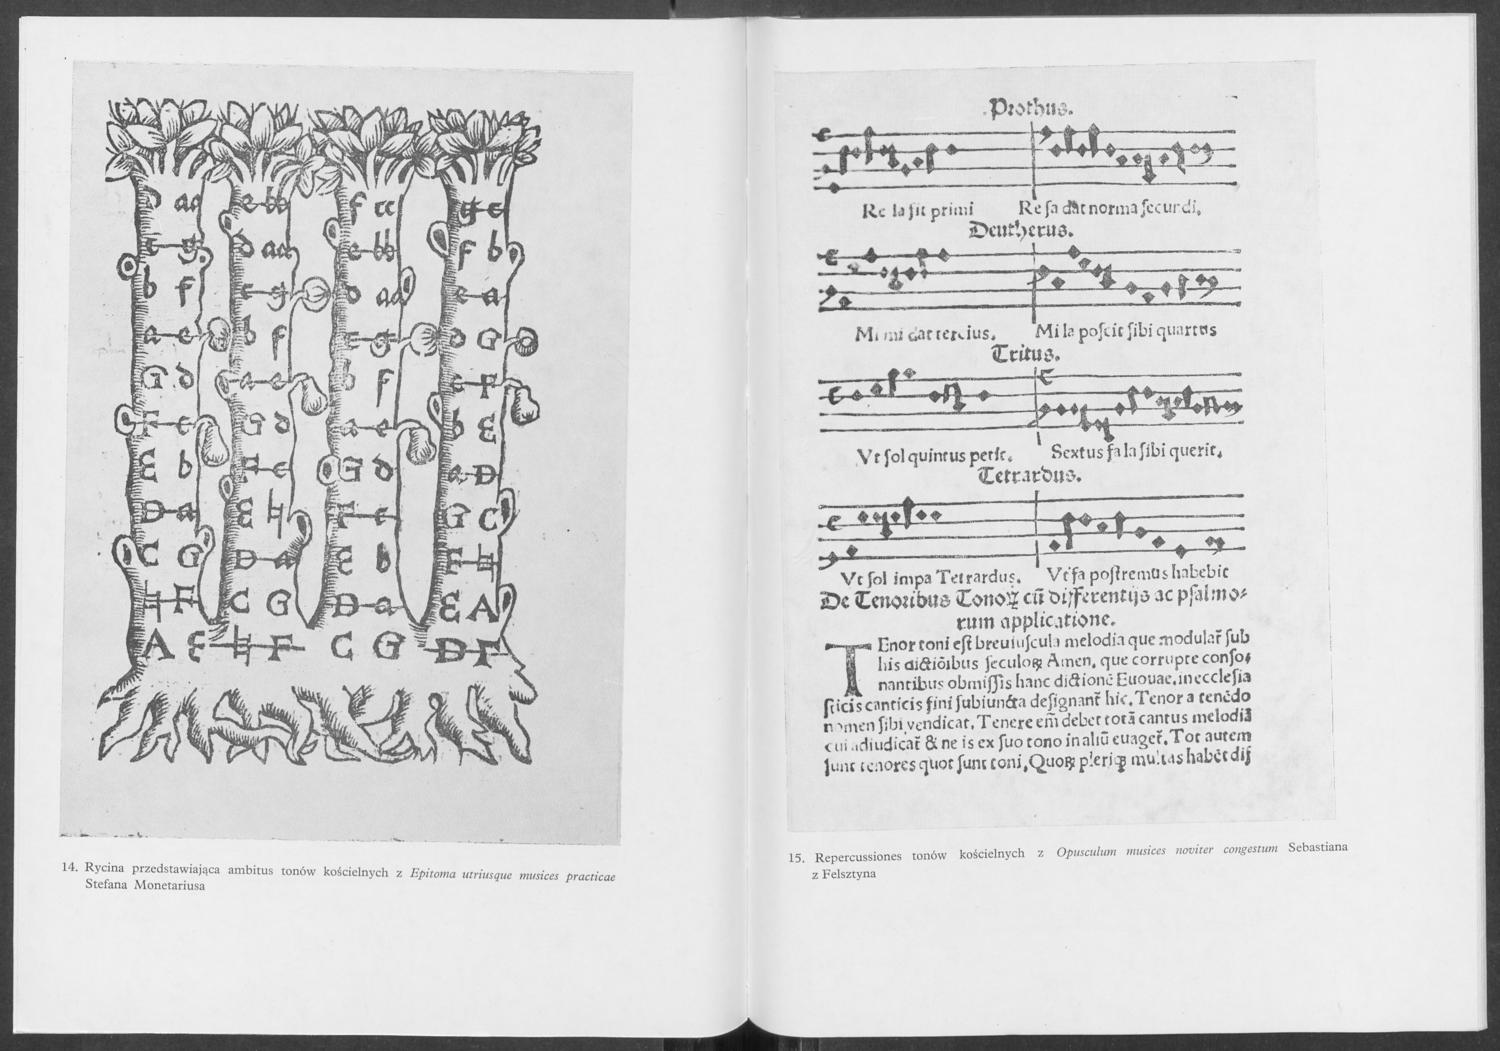 d aa e bb f cc g e
c g d aa e bb f b
b f c g d aa e a
a e b f c g d G
G d a e b f c F
F c G d a e b E
E b F c G d a D
D a E ♮ F c G C
C G D a E b F ♮
♮ F C G D a E A
A E ♮ F C G D Γ
14. Rycina przedstawiająca ambitus tonów kościelnych z Epitoma utriusque musices practicae
Stefana Monetariusa
Prothus.
Re la sit primi Re fa dāt norma secundi,
Deutherus.
Mi mi dat tercius. Mi la poscit sibi quartus
Tritus.
Vt sol quintus petit. Sextus fa la sibi querit.
Tetrardus.
Vt sol impa Tetrardus. Vt fa postremus habebit
De Tenoribus Tonoꝝ cū differentijs ac psalmo⸗
rum applicatione.
TEnor toni est breuiuscula melodia que modulat̄ sub
his dictiōibus seculoꝝ Amen, que corrupte conso⸗
nantibus obmissis hanc dictionē Euouae, in ecclesia
sticis canticis fini subiuncta designant̄ hic. Tenor a tenēdo
nomen sibi vendicat, Tenere em̄ debet totā cantus melodiā
cui adiudicat̄ & ne is ex suo tono in aliū euaget̄, Tot autem
sunt tenores quot sunt toni, Quoꝝ pleriqꝫ multas habēt dif
15. Repercussiones tonów kościelnych z Opusculum musices noviter congestum Sebastiana
z Felsztyna